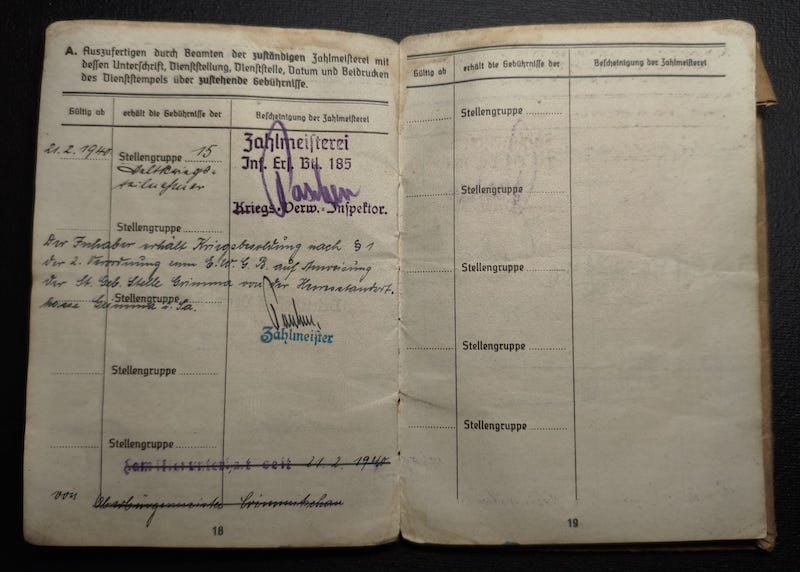 A. Auszufertigen durch Beamten der zuständigen Zahlmeisterei mit
dessen Unterschrift, Dienststellung, Dienststelle, Datum und Beidrucken
des Dienststempels über zustehende Gebührnisse.
Gültig ab erhält die Gebührnisse der Bescheinigung der Zahlmeisterei
21.2.1940. Stellengruppe 15
Weltkriegs-
teilnehmer
Zahlmeisterei
Inf. Ers. Btl. 185
Kriegs-Verw.-Inspektor.
Stellengruppe
Der Inhaber erhält Kriegsbesoldung nach § 1
der 2. Verordnung zum E.W.G.B. auf Anweisung
der St. Geb. Stelle Grimma von der Heeresstandort-
Stellengruppe
kasse Grimma i. Sa.
Zahlmeister
Stellengruppe
Stellengruppe
Familienunterhalt seit 21.2.1940
von Oberbürgermeister Crimmitschau
18
Gültig ab erhält die Gebührnisse der Bescheinigung der Zahlmeisterei
Stellengruppe
Stellengruppe
Stellengruppe
Stellengruppe
Stellengruppe
19